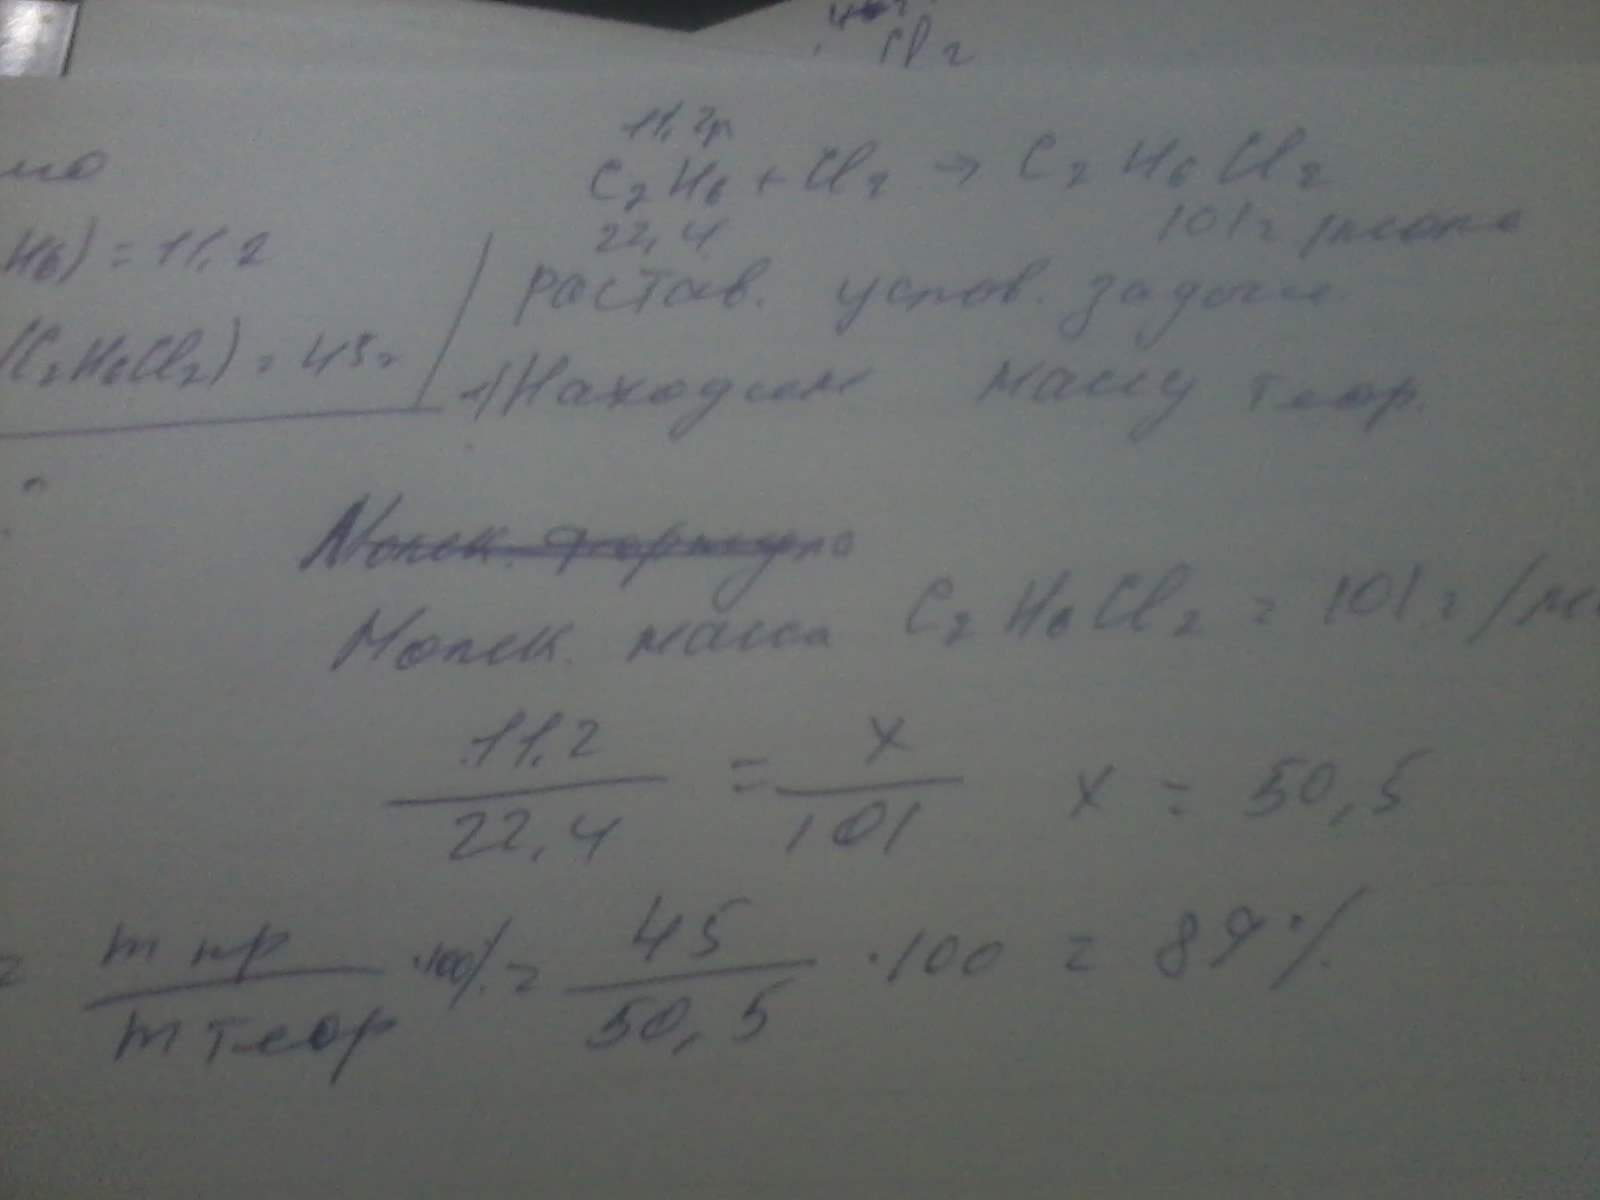 Cl2
11,2л
C2H6 + Cl2 → C2H6Cl2
22,4 101г/моль
H6) = 11,2
(C2H6Cl2) = 45г
растав. услов. задачи
1) Находим массу теор.
Молек. формула
Молек. масса C2H6Cl2 = 101г/мо
11,2/22,4 = x/101 x = 50,5
= m пр/m теор ·100% = 45/50,5 ·100 = 89%